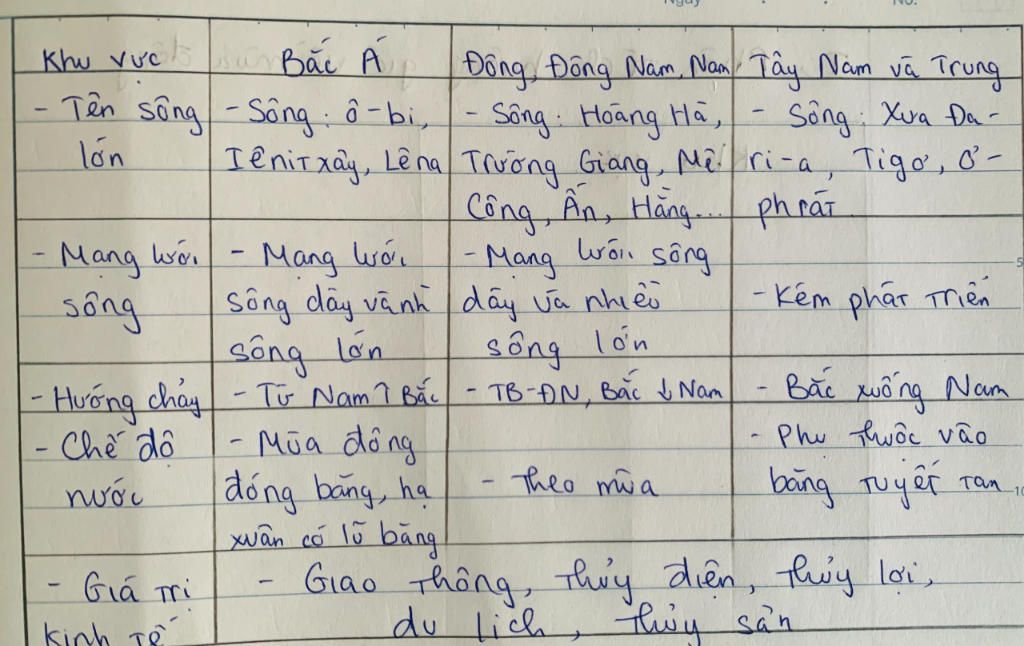 Ngày No.
Khu vực Bắc Á Đông, Đông Nam, Nam Tây Nam và Trung
- Tên sông - Sông: ô-bi, - Sông: Hoàng Hà, - Sông: Xưa Đa-
lớn Iênitxây, Lêna Trường Giang, Mê ri-a, Tigơ, Ơ-
Công, Ấn, Hằng... phrát
- Mạng lưới - Mạng lưới - Mạng lưới sông
sông sông dày và nh dày và nhiều - Kém phát triển
sông lớn sông lớn
- Hướng chảy - Từ Nam ↑ Bắc - TB-ĐN, Bắc ↓ Nam - Bắc xuống Nam
- Chế độ - Mùa đông - Phụ thuộc vào
nước đóng băng, hạ - Theo mùa băng tuyết tan
xuân có lũ băng
- Giá trị - Giao thông, thủy điện, thủy lợi,
kinh tế du lịch, thủy sản
5
10